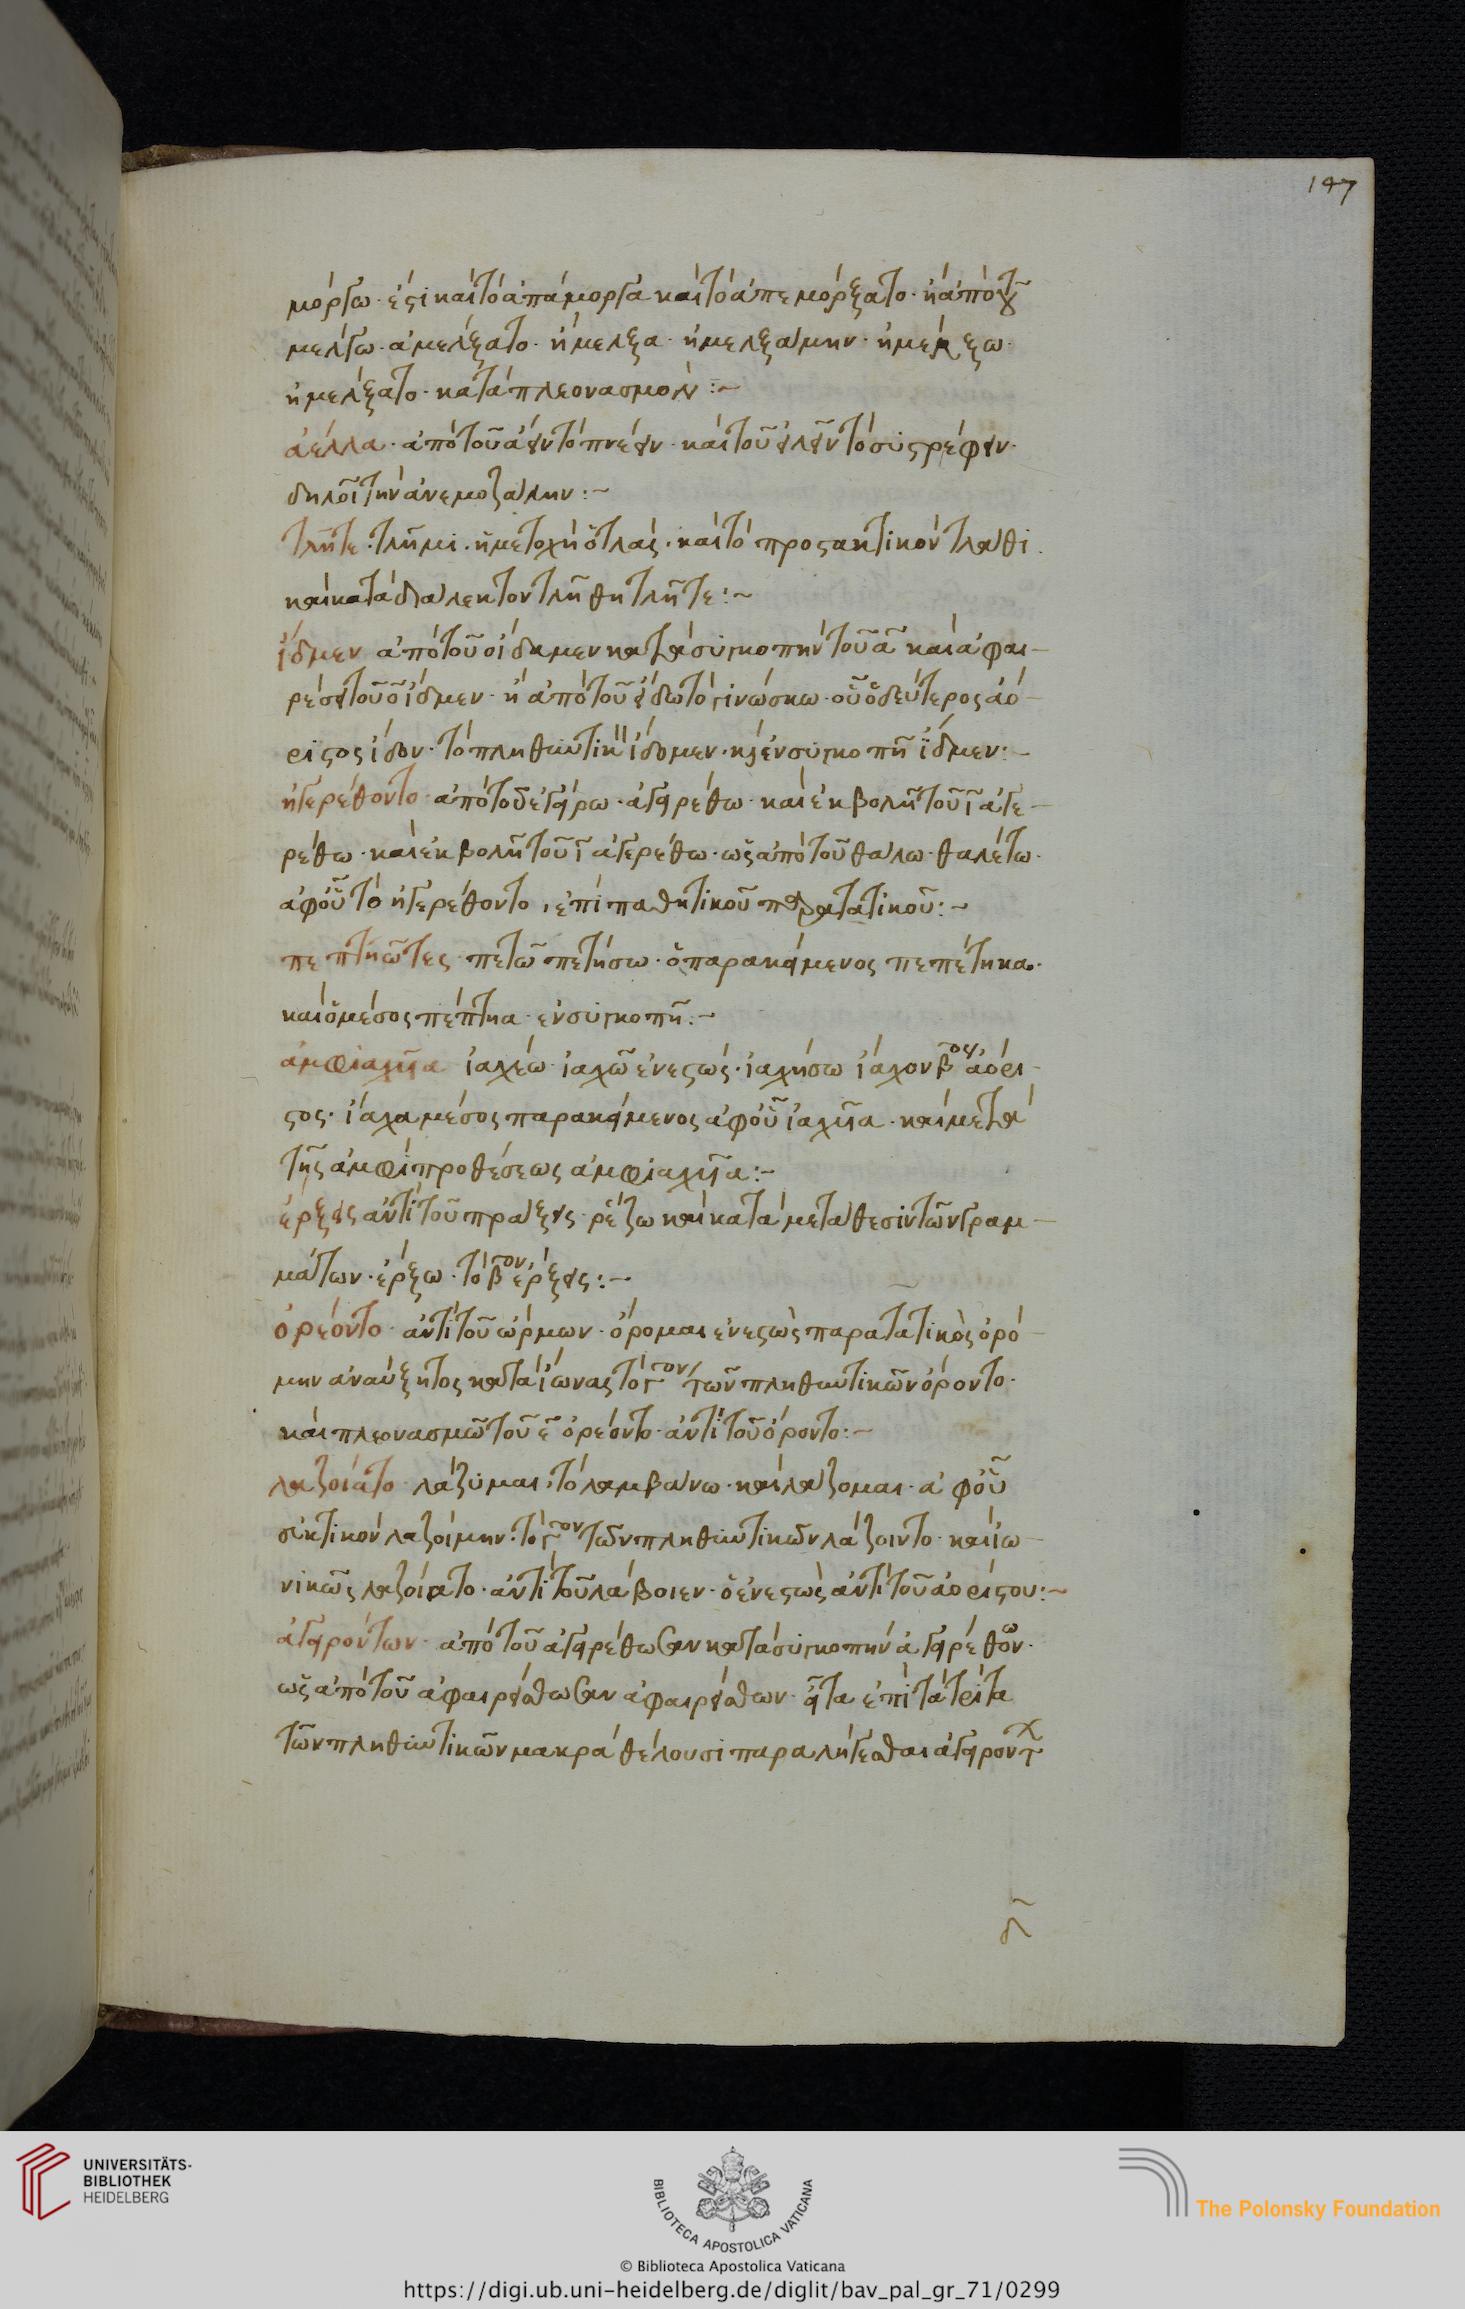 147
μόργω· ἔστι καὶ τὸ ἀπάμοργα καὶ τὸ ἀπεμόρξατο· ἢ ἀπὸ τοῦ
μέλγω· ἀμέλξατο· ἤμελξα· ἠμελξάμην· ἠμέλξω·
ἠμέλξατο· κατὰ πλεονασμόν :~
ἀέλλα· ἀπὸ τοῦ ἀεῖν τὸ πνέειν· καὶ τοῦ εἰλεῖν τὸ συστρέφειν·
δηλοῖ τὴν ἀνεμοζάλην :~
τλῆτε· τλῆμι· ἡ μετοχὴ ὁ τλάς· καὶ τὸ προστακτικὸν τλάθι·
καὶ κατὰ διάλεκτον τλῆθη τλῆτε :~
ἴδμεν ἀπὸ τοῦ οἴδαμεν κατὰ συγκοπὴν τοῦ α καὶ ἀφαι-
ρέσει τοῦ ο ἴδμεν· ἢ ἀπὸ τοῦ εἴδω τὸ γινώσκω· οὗ ὁ δεύτερος ἀό-
ριστος ἴδον· τὸ πληθυντικὸν ἴδομεν· καὶ ἐν συγκοπῇ ἴδμεν :~
ἠγερέθοντο· ἀπὸ τοῦ ἐγείρω· ἀγειρέθω· καὶ ἐκβολῇ τοῦ ι ἀγε-
ρέθω· καὶ ἐκβολῇ τοῦ ι ἀγερέθω· ὡς ἀπὸ τοῦ θάλω· θαλέτω·
ἀφ' οὗ τὸ ἠγερέθοντο, ἐπὶ παθητικοῦ παρατατικοῦ :~
πεπτηῶτες· πετῶ πετήσω· ὁ παρακείμενος πεπέτηκα·
καὶ ὁ μέσος πέπτηα· ἐν συγκοπῇ :~
ἀμφιαχυῖα ἰαχέω· ἰαχῶ ἐνεστώς· ἰαχήσω ἴαχον βος ἀόρι-
στος· ἴαχα μέσος παρακείμενος ἀφ' οὗ ἰαχυῖα· καὶ μετὰ
τῆς ἀμφὶ προθέσεως ἀμφιαχυῖα :~
ἔρξεις ἀντὶ τοῦ πράξεις· ῥέζω καὶ κατὰ μετάθεσιν τῶν γραμ-
μάτων· ἔρξω· τὸ βον ἔρξεις :~
ὀρέοντο· ἀντὶ τοῦ ὥρμων· ὄρομαι ἐνεστὼς παρατατικὸς ὀρό-
μην ἀναύξητος κατὰ ἴωνας τὸ γον τῶν πληθυντικῶν ὄροντο·
καὶ πλεονασμῶ τοῦ ε ὀρέοντο· ἀντὶ τοῦ ὄροντο :~
λαζοίατο· λάζυμαι· τὸ λαμβάνω· καὶ λάζομαι· ἀφ' οὗ
εὐκτικὸν λαζοίμην· τὸ γον τῶν πληθυντικῶν λάζοιντο· καὶ ἰω-
νικῶς λαζοίατο· ἀντὶ τοῦ λάβοιεν· ὁ ἐνεστὼς ἀντὶ τοῦ ἀορίστου :~
ἀγειρόντων· ἀπὸ τοῦ ἀγειρέθωσαν κατὰ συγκοπὴν ἀγειρέθων·
ὡς ἀπὸ τοῦ ἀφαιρείσθωσαν ἀφαιρείσθων· εἶτα ἐπὶ τὰ τρίτα
τῶν πληθυντικῶν μακρὰ θέλουσι παραλήγεσθαι ἀγειρόντ
UNIVERSITÄTS-
BIBLIOTHEK
HEIDELBERG
BIBLIOTECA APOSTOLICA VATICANA
The Polonsky Foundation
© Biblioteca Apostolica Vaticana
https://digi.ub.uni-heidelberg.de/diglit/bav_pal_gr_71/0299